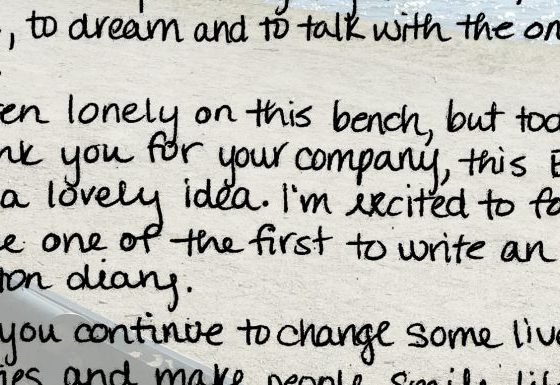 , to dream and to talk with the on
en lonely on this bench, but tod
nk you for your company, this B
a lovely idea. I'm excited to fo
e one of the first to write an
ton diary.
you continue to change some live
ies and make people smile, lif